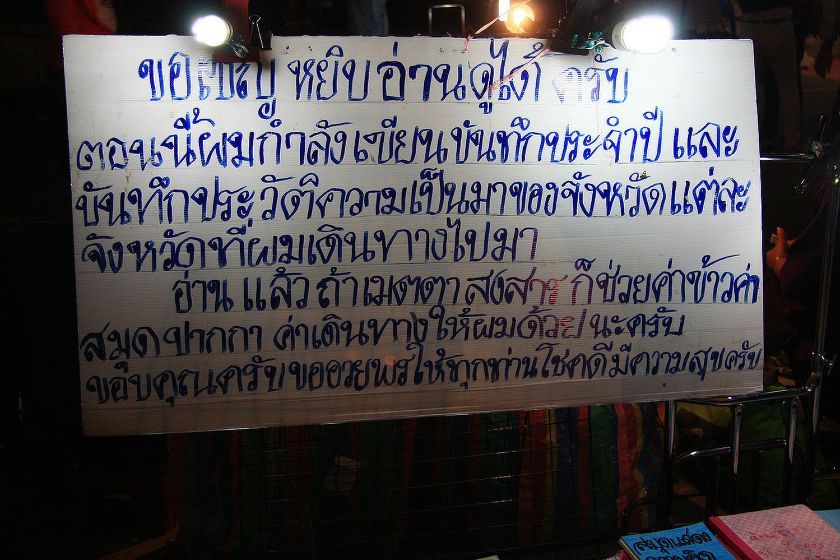 ขอเชิญ หยิบ อ่านดูได้ ครับ
ตอนนี้ผมกำลังเขียนบันทึกประจำปี และ
บันทึกประวัติความเป็นมาของจังหวัดแต่ละ
จังหวัดที่ผมเดินทางไปมา
อ่าน แล้ว ถ้าเมตตา สงสาร ก็ช่วยค่าข้าวค่า
สมุด ปากกา ค่าเดินทางให้ผมด้วย นะครับ
ขอบคุณครับขออวยพรให้ทุกท่านโชคดีมีความสุขครับ